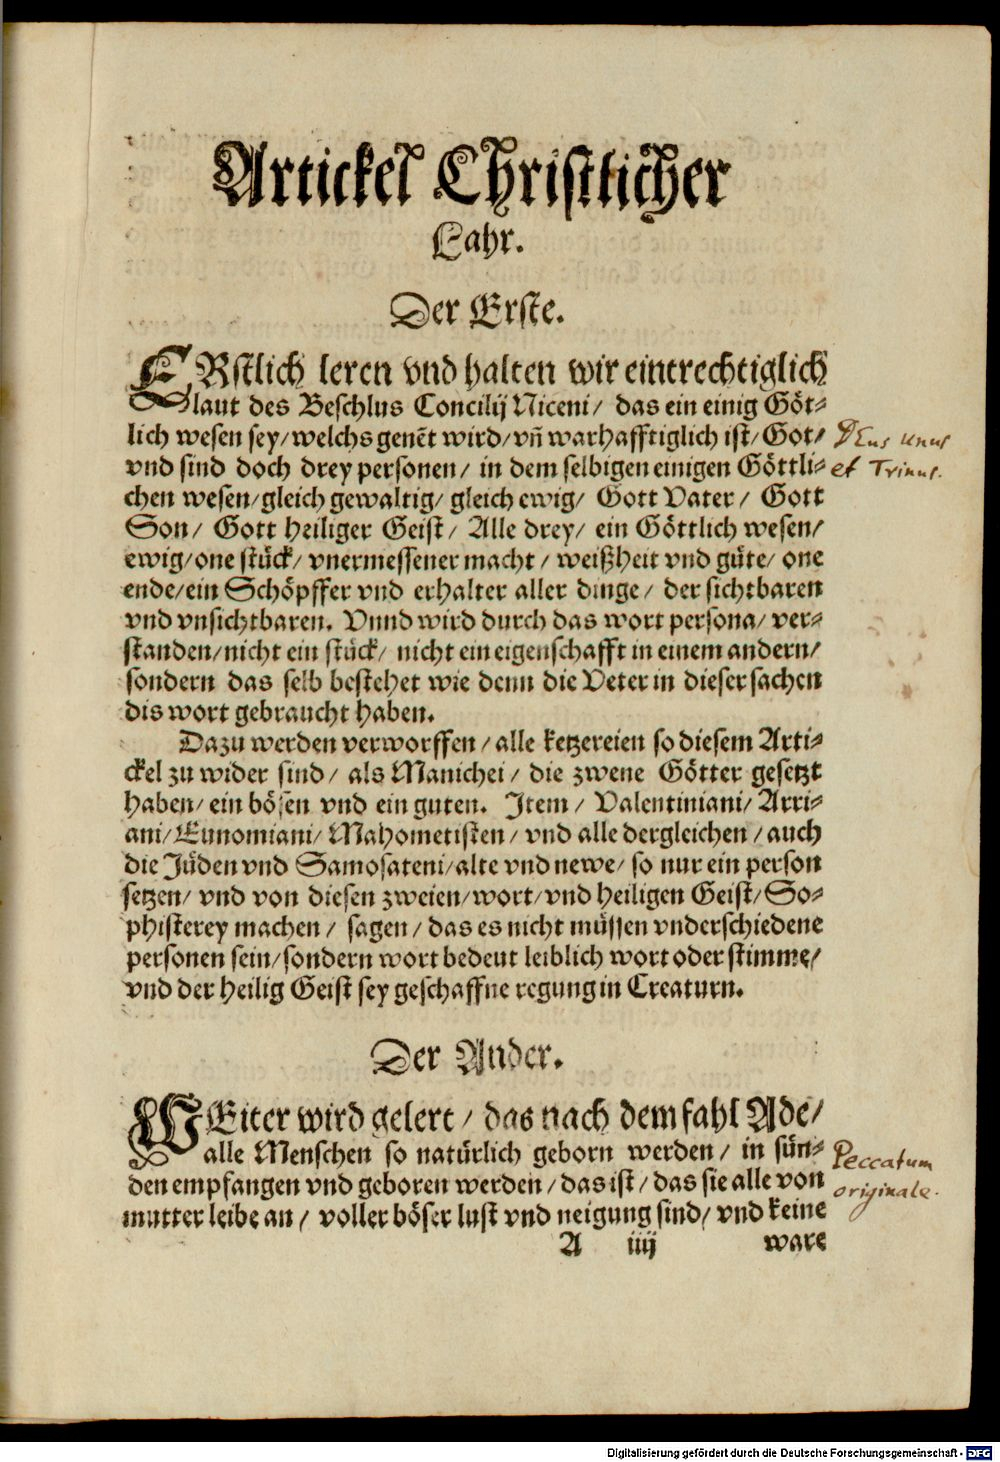 Artickel Christlicher
Lahr.
Der Erste.
ERstlich leren vnd halten wir eintrechtiglich
laut des Beschlus Concilij Niceni/ das ein einig Göt⸗
lich wesen sey/welchs genēt wird/vñ warhafftiglich ist/Got/
DEus unus
vnd sind doch drey personen/ in dem selbigen einigen Göttli⸗
et Trinus.
chen wesen/gleich gewaltig/ gleich ewig/ Gott Vater/ Gott
Son/ Gott heiliger Geist/ Alle drey/ ein Göttlich wesen/
ewig/one stück/ vnermessener macht/ weißheit vnd güte/ one
ende/ein Schöpffer vnd erhalter aller dinge/ der sichtbaren
vnd vnsichtbaren. Vnnd wird durch das wort persona/ ver⸗
standen/nicht ein stück/ nicht ein eigenschafft in einem andern/
sondern das selb bestehet wie denn die Veter in dieser sachen
dis wort gebraucht haben.
Dazu werden verworffen/alle ketzereien so diesem Arti⸗
ckel zu wider sind/ als Manichei/ die zwene Götter gesetzt
haben/ein bösen vnd ein guten. Item/ Valentiniani/ Arri⸗
ani/Eunomiani/ Mahometisten/ vnd alle dergleichen/auch
die Jüden vnd Samosateni/alte vnd newe/ so nur ein person
setzen/ vnd von diesen zweien/wort/vnd heiligen Geist/So⸗
phisterey machen/ sagen/das es nicht müssen vnderschiedene
personen sein/sondern wort bedeut leiblich wort oder stimme/
vnd der heilig Geist sey geschaffne regung in Creaturn.
Der Ander.
WEiter wird gelert/ das nach dem fahl Ade/
alle Menschen so natürlich geborn werden/ in sün⸗
Peccatum
den empfangen vnd geboren werden/das ist/das sie alle von
originale.
mutter leibe an/ voller böser lust vnd neigung sind/ vnd keine
A iiij ware
Digitalisierung gefördert durch die Deutsche Forschungsgemeinschaft - DFG